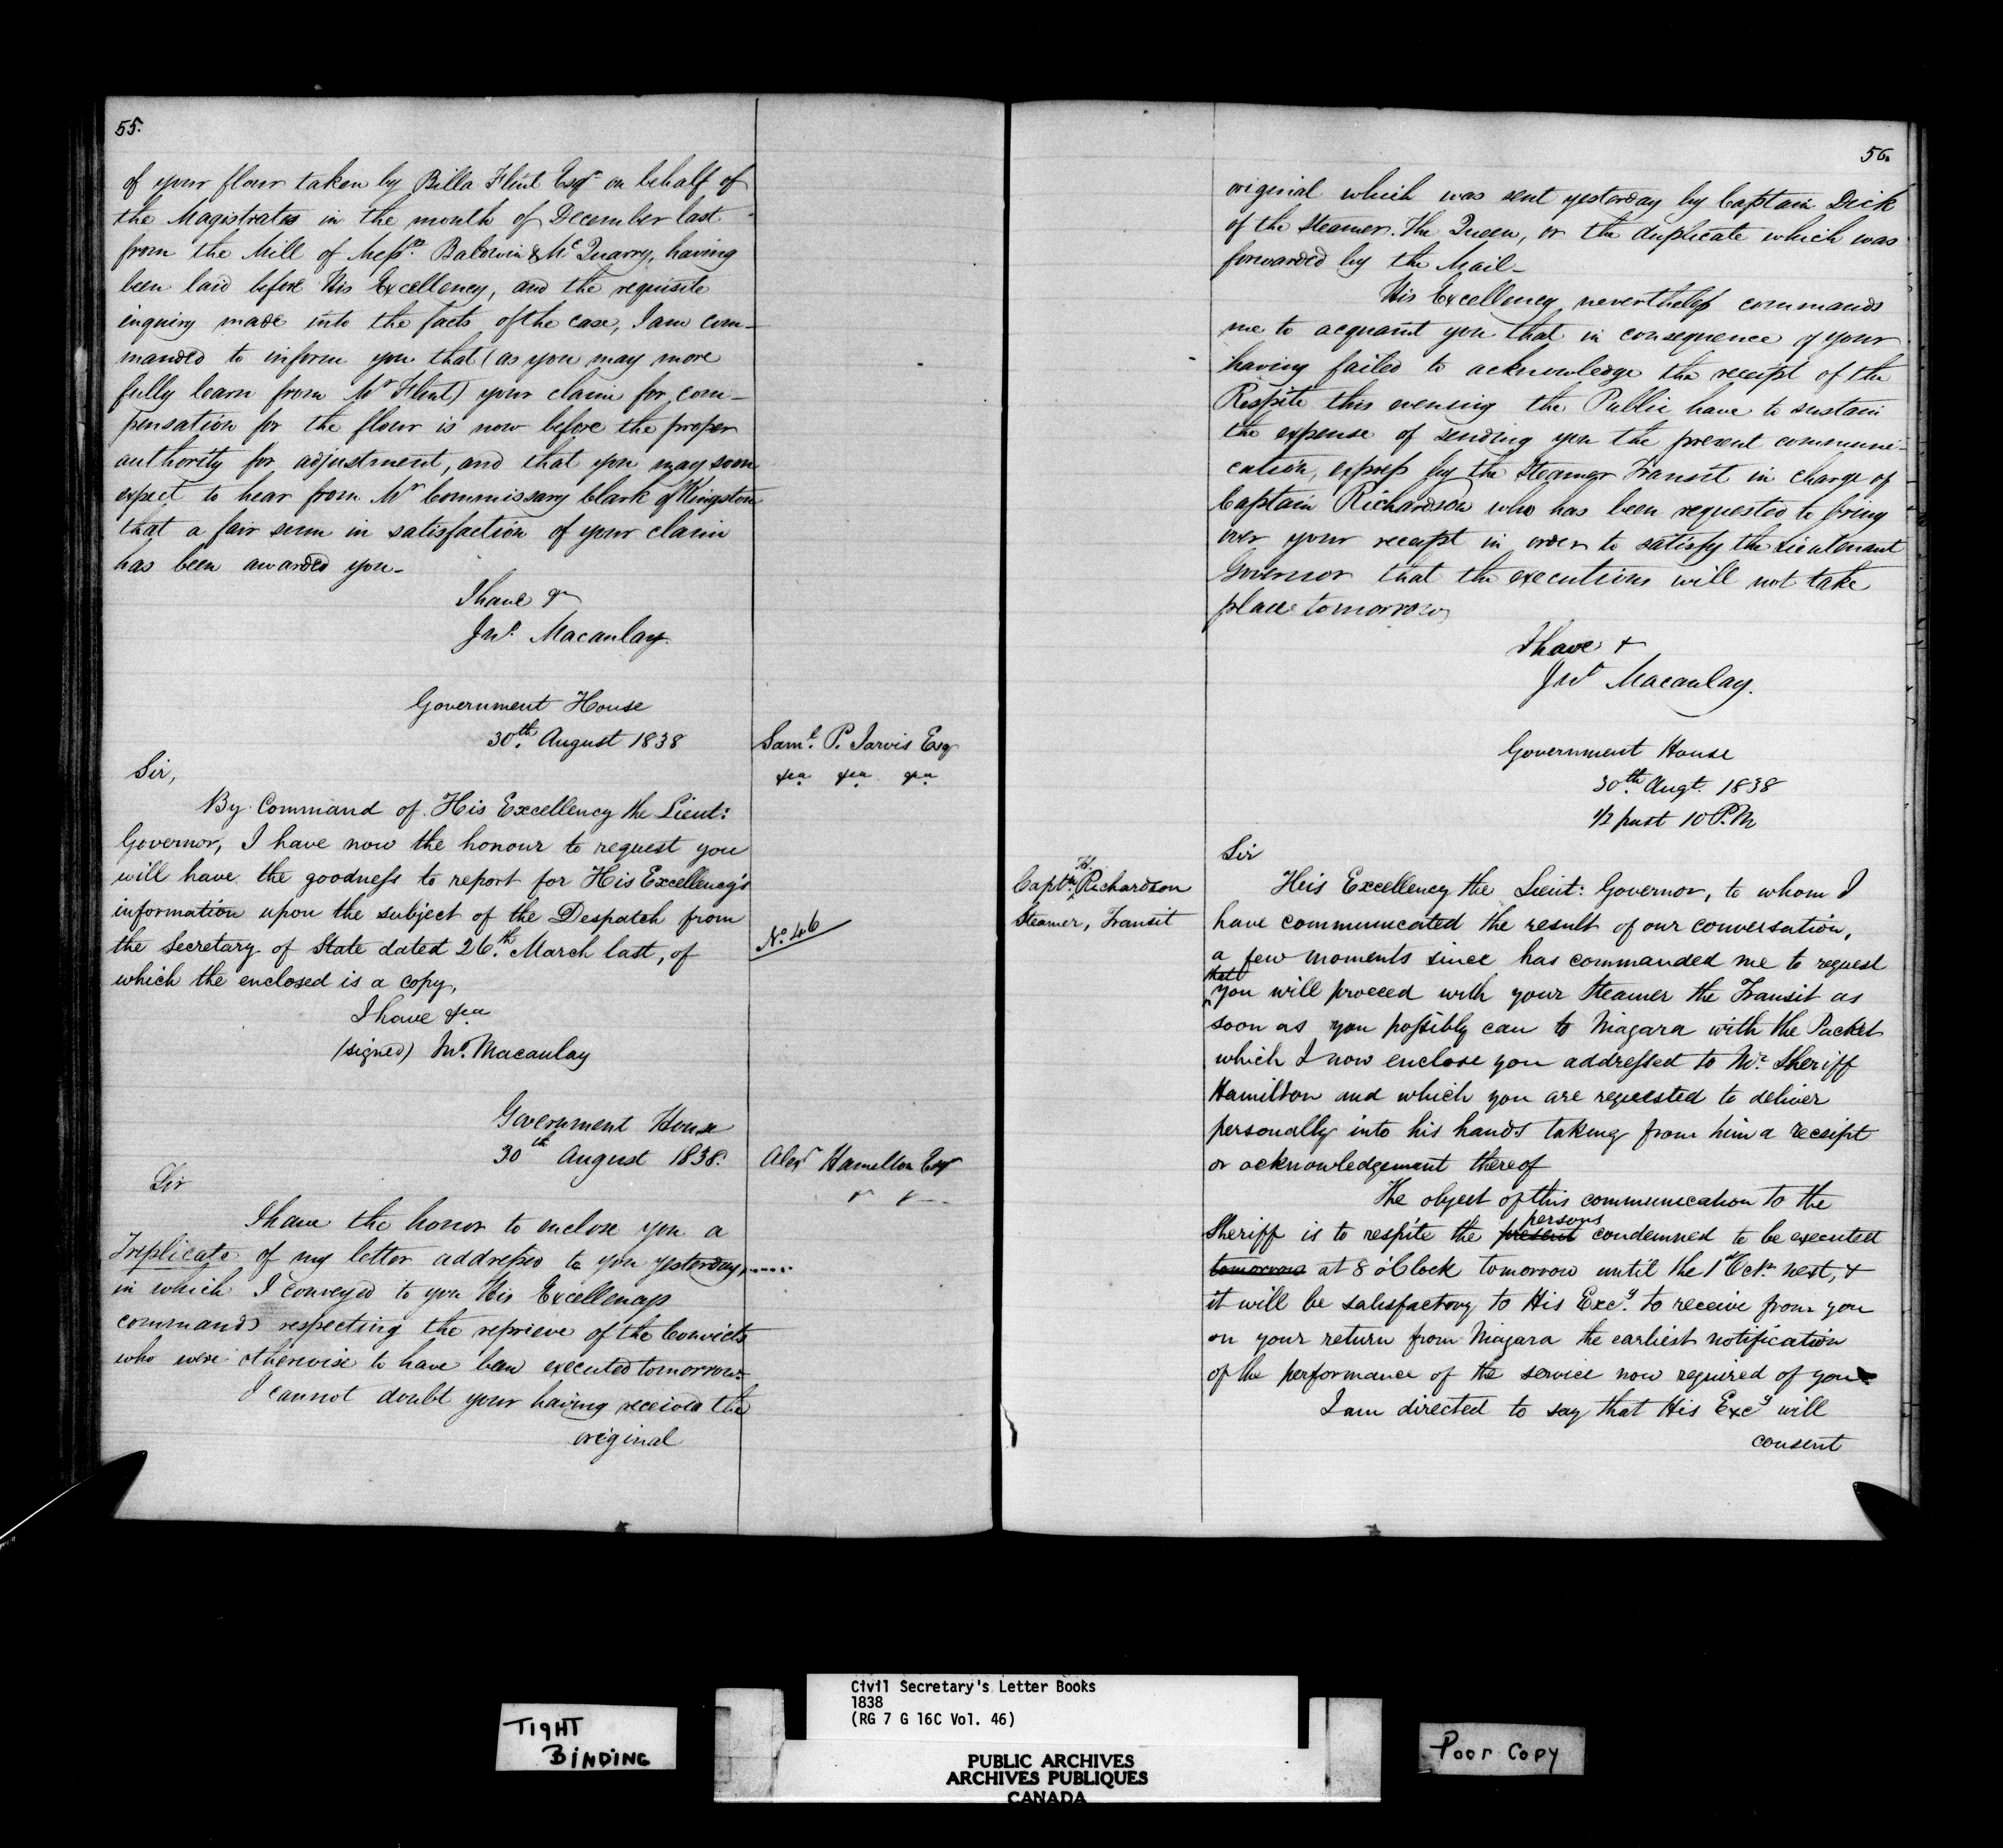 55.
of your flour taken by Billa Flint Esqr on behalf of
the Magistrates in the month of December last
from the Mill of Messrs. Baldwin & McQuarry, having
been laid before His Excellency, and the requisite
inquiry made into the facts of the case, I am com-
manded to inform you that (as you may more
fully learn from Mr Flint) your claim for com-
pensation for the flour is now before the proper
authority for adjustment, and that you may soon
expect to hear from Mr Commissary Clark of Kingston
that a fair sum in satisfaction of your claim
has been awarded you-
I have &
Jno. Macaulay.
Government House
30th. August 1838
Saml. P. Jarvis Esq
&ca &ca &ca
Sir,
By Command of His Excellency the Lieut:
Governor, I have now the honour to request you
will have the goodness to report for His Excellency's
information upon the subject of the Despatch from
the Secretary of State dated 26th. March last, of
No. 46
which the enclosed is a copy,
I have &ca
(signed) Jno. Macaulay
Government House
30th August 1838.
Alexr Hamilton Esqr
Sir
I have the honor to enclose you a
Triplicate of my letter addressed to you yesterday,.....
in which I conveyed to you His Excellencys
commands respecting the reprieve of the Convicts
who were otherwise to have been executed tomorrow-
I cannot doubt your having received the
original
56.
original which was sent yesterday by Captain Dick
of the Steamer. The Queen, or the duplicate which was
forwarded by the Mail-
His Excellency nevertheless commands
me to acquaint you that in consequence of your
having failed to acknowledge the receipt of the
Respite this evening the Public have to sustain
the expense of sending you the present communi-
cation, express by the Steamer Transit in charge of
Captain Richardson who has been requested to bring
over your receipt in order to satisfy the Lieutenant
Governor that the executions will not take
place tomorrow
I have &
Jno Macaulay.
Government House
30th. Augt. 1838
1/2 past 10 P.M
Sir
Captn. H. Richardson
Steamer, Transit
His Excellency the Lieut: Governor, to whom I
have communicated the result of our conversation,
a few moments since has commanded me to request
that you will proceed with your Steamer the Transit as
soon as you possibly can to Niagara with the Packet
which I now enclose you addressed to Mr. Sheriff
Hamilton and which you are requested to deliver
personally into his hands taking from him a receipt
or acknowledgement thereof
The object of this communication to the
Sheriff is to respite the present persons condemned to be executed
tomorrow at 8 o'Clock tomorrow until the 1st Octr. next, &
it will be satisfactory to His Excy. to receive from you
on your return from Niagara the earliest notification
of the performance of the service now required of you
I am directed to say that His Excy will
consent
TIGHT
BINDING
Civil Secretary's Letter Books
1838
(RG 7 G 16C Vol. 46)
PUBLIC ARCHIVES
ARCHIVES PUBLIQUES
CANADA
Poor Copy